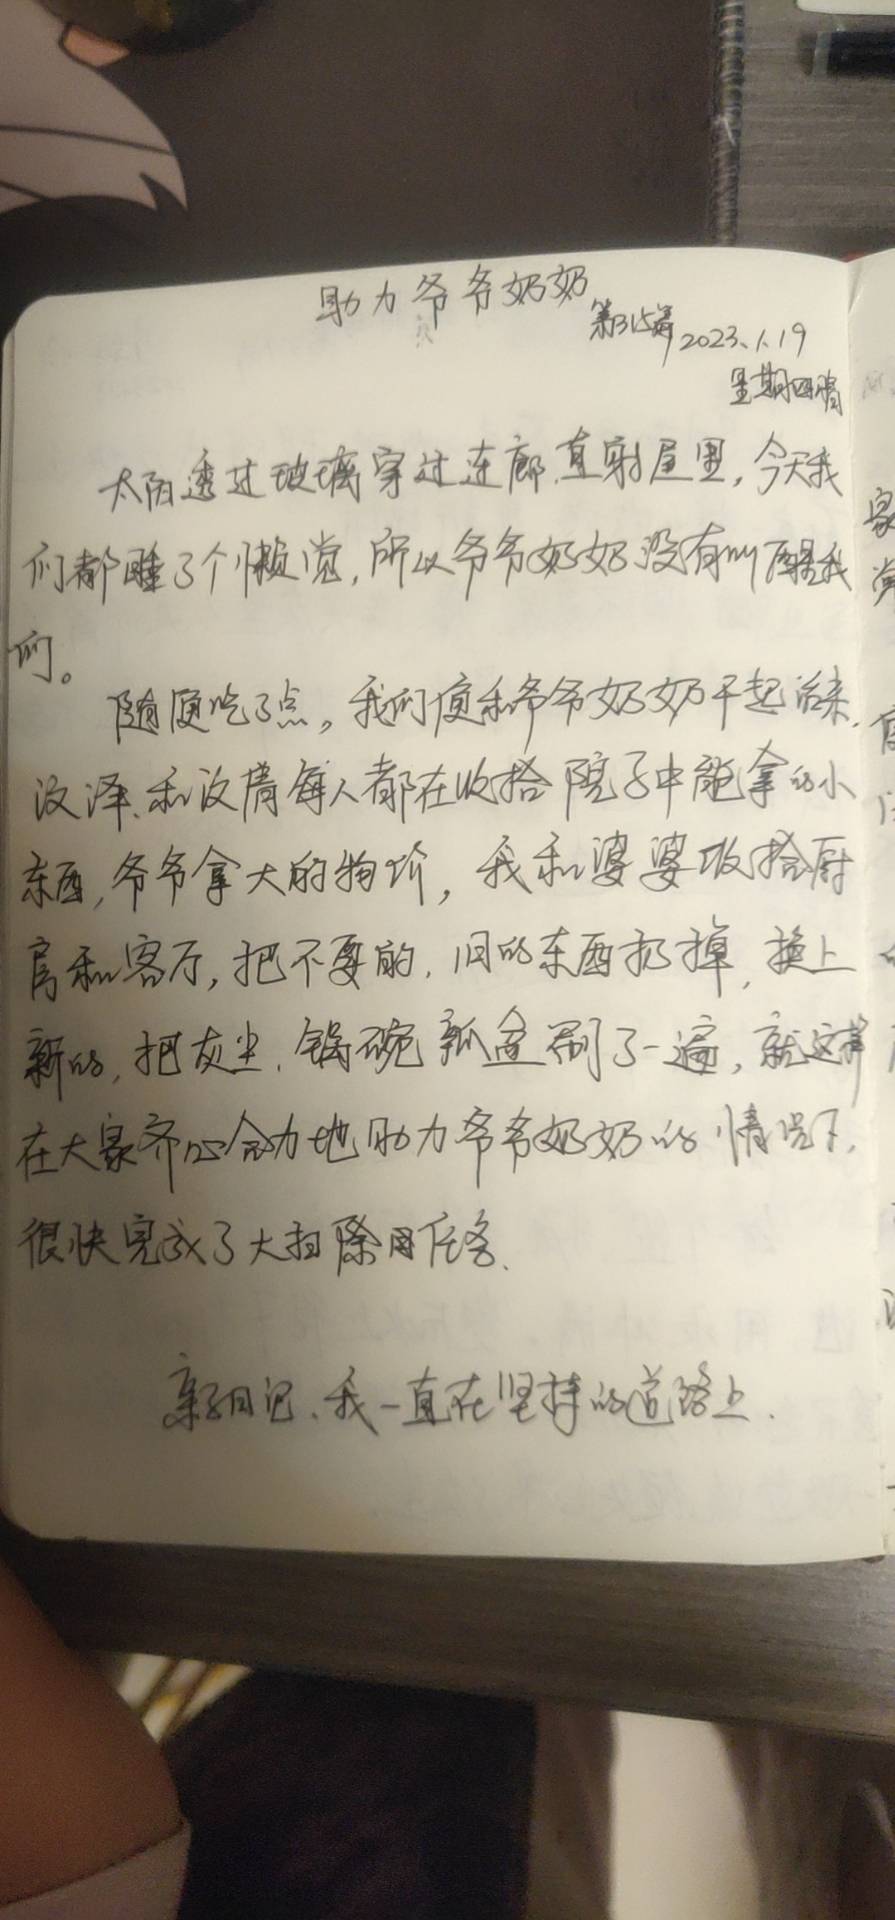 助力爷爷奶奶
第315篇
2023.1.19
星期四晴
太阳透过玻璃穿过连廊直射屋里,今天我
们都睡了个懒觉,所以爷爷奶奶没有叫醒我
们。
随便吃了点,我们便和爷爷奶奶干起活来,
汶泽、和汶清每人都在收拾院子中能拿的小
东西,爷爷拿大的物价,我和婆婆收拾厨
房和客厅,把不要的,旧的东西扔掉,换上
新的,把灰尘、锅碗瓢盆刷了一遍,就这样
在大家齐心合力地助力爷爷奶奶的情况下,
很快完成了大扫除任务.
亲子日记、我一直在坚持的道路上.